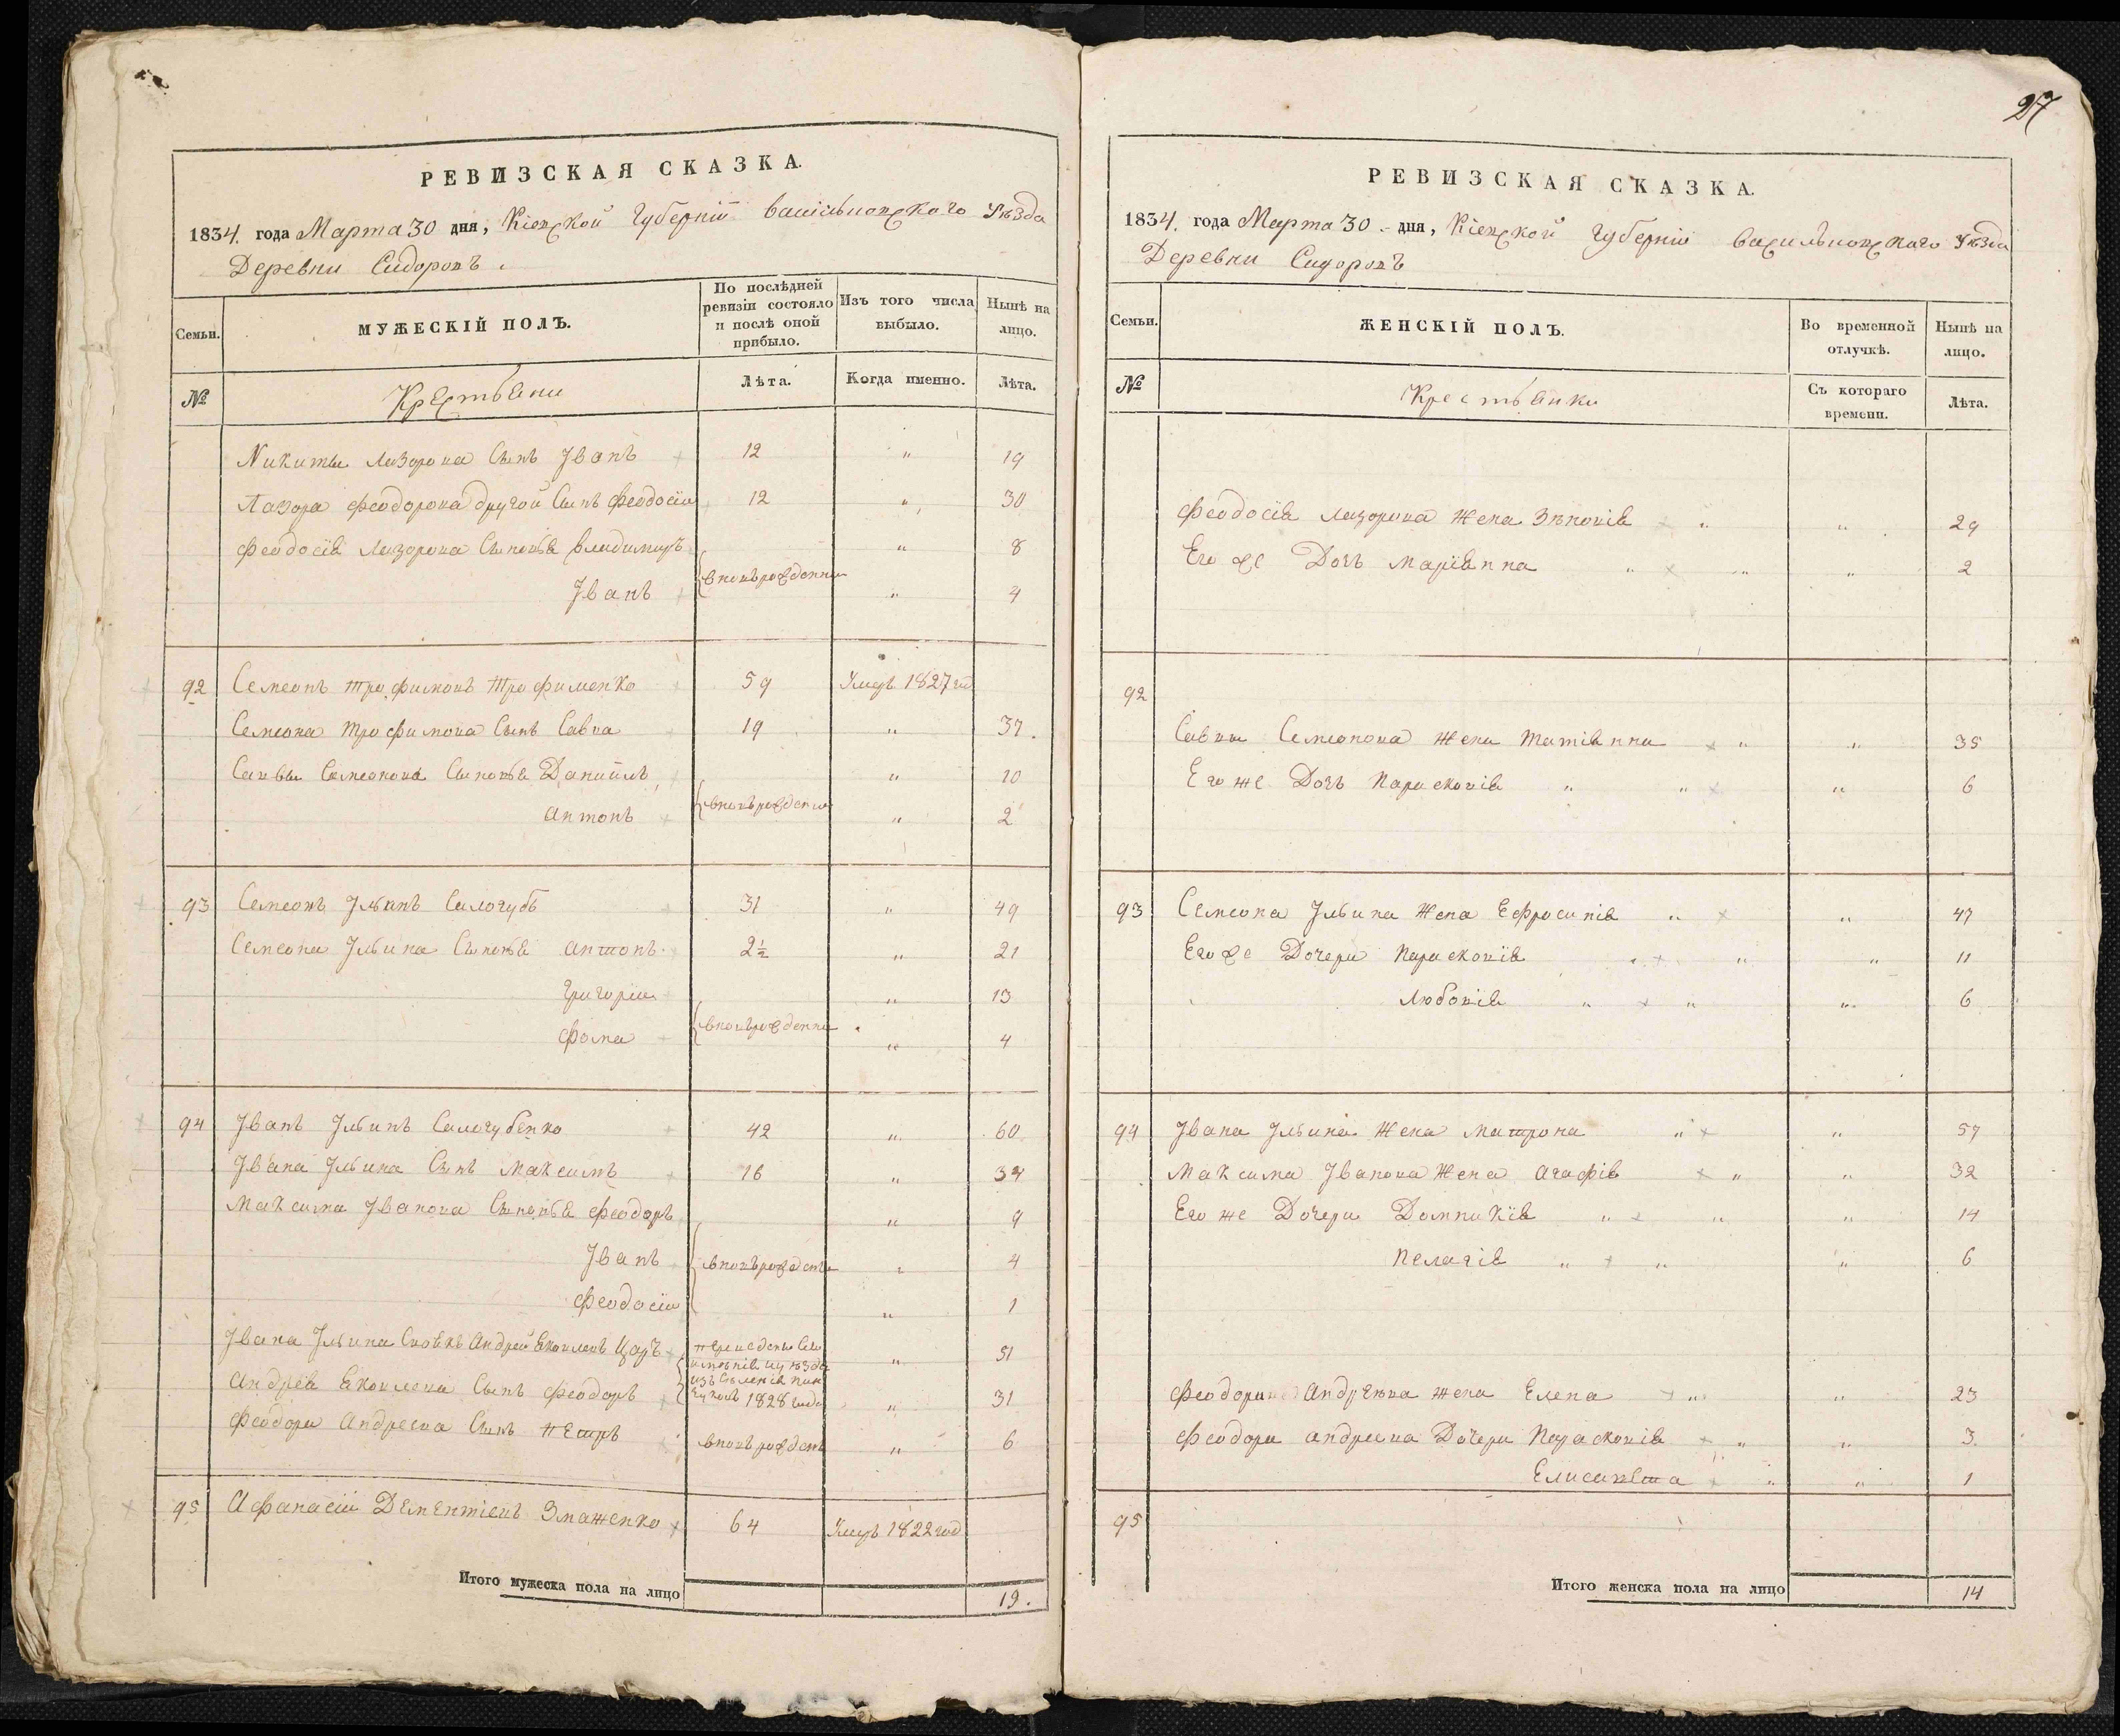 27
РЕВИЗСКАЯ СКАЗКА.
1834. года Марта 30 дня, Кіевской Губерніи Васильковскаго Уѣзда
Деревни Сидоровъ
Семьи. МУЖЕСКІЙ ПОЛЪ. По послѣдней ревизіи состояло и послѣ оной прибыло. Изъ того числа выбыло. Нынѣ на лицо.
№ Крестьяни Лѣта. Когда именно. Лѣта.
Никиты Лазорова Сынъ Іванъ 12 " 19
Лазора Феодорова другой Сынъ Феодосій 12 " 30
Феодосія Лазорова Сыновья Владимиръ " 8
Іванъ вновьрожденни " 4
92 Семеонъ Трофимовъ Трофименко 59 Умеръ 1827 год
Семеона Трофимова Сынъ Савва 19 " 37.
Саввы Семеонова Сыновья Даніилъ " 10
Антонъ вновьрождени " 2
93 Семеонъ Ільинъ Салогубъ 31 " 49
Семеона Ільина Сыновья Антонъ 2½ " 21
Григорій " 13
Фома вновьрожденни " 4
94 Іванъ Ільинъ Салогубенко 42 " 60
Івана Ільина Сынъ Максимъ 16 " 34
Максима Іванова Сыновья Феодоръ " 9
Іванъ вновьрожденъ " 4
Феодосій " 1
Івана Ільина Андрей Царъ " 51
Андрея Сынъ Феодоръ 1828 года " 31
Феодора Андреева Сынъ Петръ вновьрожденъ " 6
95 Афанасій Дементіевъ Змаженко 64 Умеръ 1822 год
Итого мужеска пола на лицо 19.
РЕВИЗСКАЯ СКАЗКА.
1834. года Марта 30 дня, Кіевской Губерніи Васильковскаго Уѣзда
Деревни Сидоровъ
Семьи. ЖЕНСКІЙ ПОЛЪ. Во временной отлучкѣ. Нынѣ на лицо.
№ Крестьянки Съ котораго времени. Лѣта.
Феодосія Лазорова Жена Зѣновія " " 29
Его же Дочъ Маріянна " " " 2
92
Саввы Семеонова Жена Татіянна " " 35
Его же Дочъ Парасковія " " " 6
93 Семеона Ільина Жена Ефросинія " " 47
Его же Дочери Парасковія " " " 11
Любовія " " " 6
94 Івана Ільина Жена Матрона " " 57
Максима Іванова Жена Агафія " " 32
Его же Дочери Домникія " " " 14
Пелагія " " " 6
Феодора Андреева Жена Елена " " 23
Феодора Андреева Дочери Парасковія " " 3
Елисавета " " 1
95
Итого женска пола на лицо 14